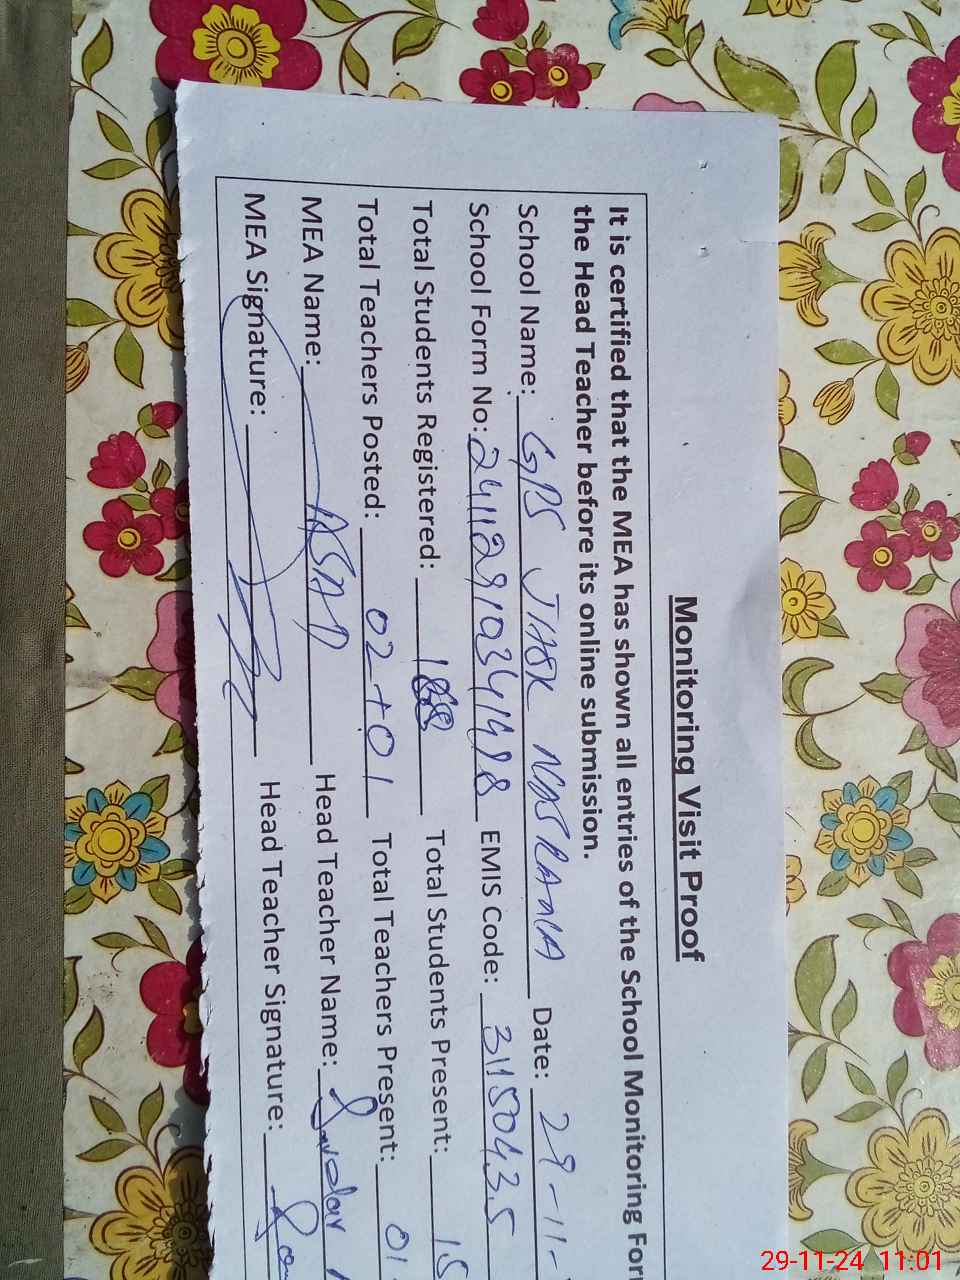 Monitoring Visit Proof
It is certified that the MEA has shown all entries of the School Monitoring For
the Head Teacher before its online submission.
School Name: GPS Date: 29-11-
School Form No: EMIS Code: 31150435
Total Students Registered: Total Students Present: 15
Total Teachers Posted: 02+01 Total Teachers Present: 01
MEA Name: ASAD Head Teacher Name:
MEA Signature: Head Teacher Signature:
29-11-24 11:01